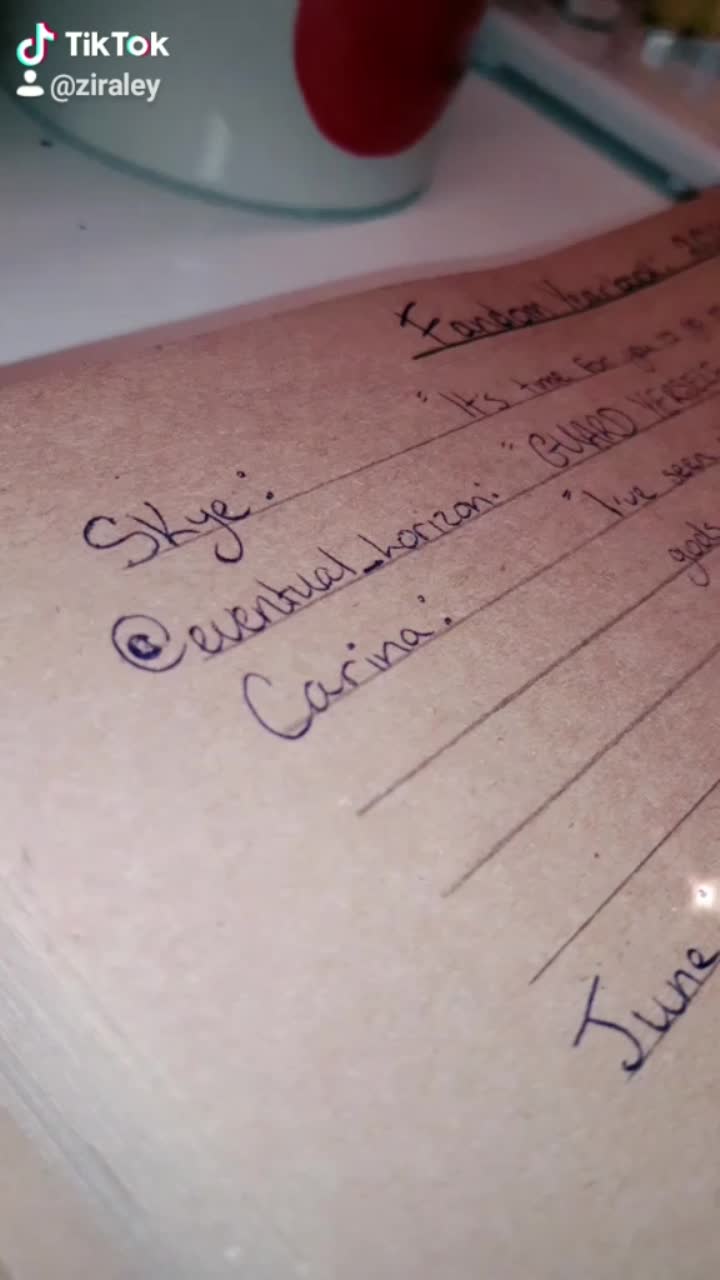 TikTok
@ziraley
Fandom
Skye: "It's time for you
@eventual_horizon: "GUARD
Carina: "I've seen
gods
June